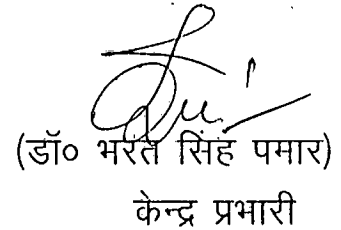 (डॉ० भरत सिंह पमार)
केन्द्र प्रभारी